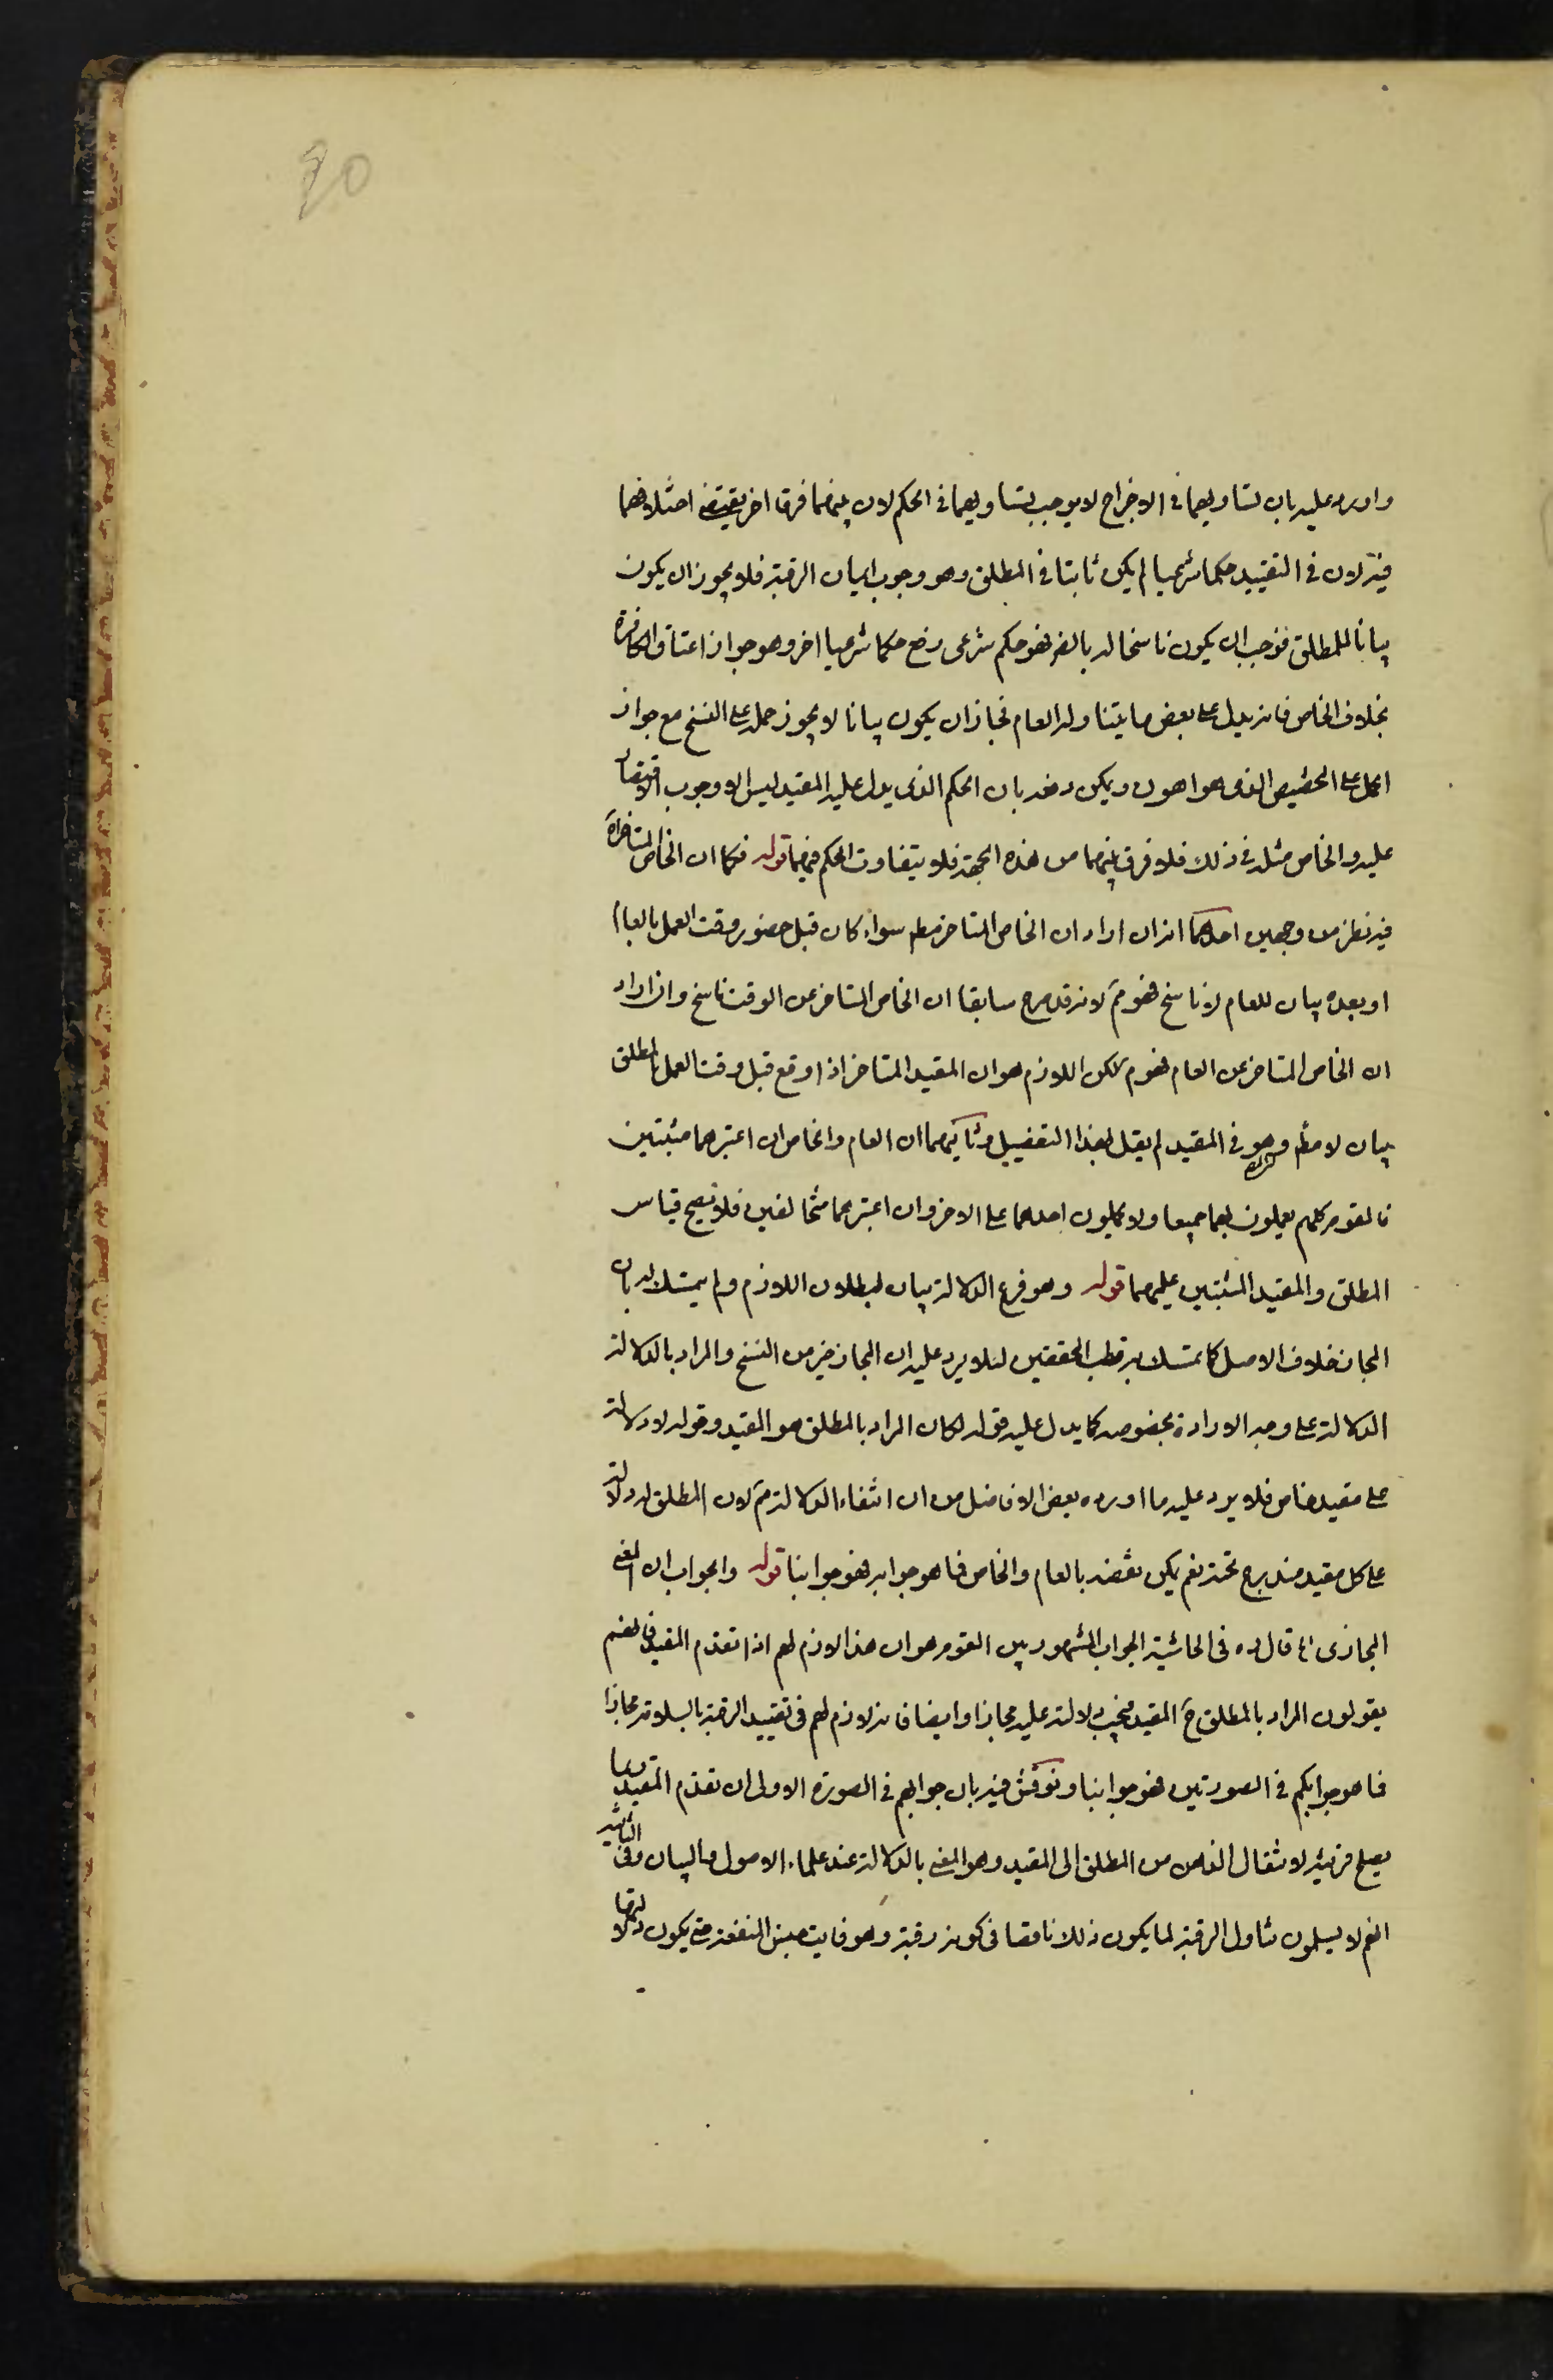 80
واورد عليه بان تساويهما في الاخراج لا يوجب تساويهما في الحكم لان بينهما فرقا اخر يقتضي اختلافهما
فيه لان في التقييد حكما شرعيا لم يكن ثابتا في المطلق وهو وجوب ايمان الرقبة فلا يجوز ان يكون
بيانا للمطلق فوجب ان يكون ناسخا له بالضر فهو حكم شرعي رفع حكما شرعيا اخر وهو جواز اعتاق الكافرة
بخلاف الخاص فانه يدل على بعض ما يتناوله العام فجاز ان يكون بيانا لا يجوز حمله على النسخ مع جواز
الحمل على التخصيص الذي هو اهون ويمكن دفعه بان الحكم الذي يدل عليه المقيد ليس الا وجوب الاقتصار
عليه والخاص مثله في ذلك فلا فرق بينهما من هذه الجهة فلا يتفاوت الحكم فيهما قوله فكما ان الخاص المتاخر اه
فيه نظر من وجهين احدهما انه ان اراد ان الخاص المتاخر مطم سواء كان قبل حضور وقت العمل بالعام
او بعده بيان للعام لا ناسخ فهو مم لانه قد صرح سابقا ان الخاص المتاخر عن الوقت ناسخ وان اراد
ان الخاص المتاخر عن العام فهو م لكن اللازم هو ان المقيد المتاخر اذا وقع قبل وقت العمل بالمطلق
بيان لا مطم وهو في المقيد لم يقل بهذا التفصيل وثانيهما ان العام والخاص ان اعتبرهما مثبتين
فالقوم كلهم يعملون بهما جميعا ولا يحملون احدهما على الاخر وان اعتبرهما متخالفين فلا يصح قياس
المطلق والمقيد المثبتين عليهما قوله وهو فرع الدلالة بيان لبطلان اللازم ولم يتمسك له بان
المجاز خلاف الاصل كما تمسك به قطب المحققين لئلا يرد عليه ان المجاز خير من النسخ والمراد بالدلالة
الدلالة على وجه الارادة بخصوصه كما يدل عليه قوله لكان المراد بالمطلق هو المقيد وقوله لا دلالة
على مقيد خاص فلا يرد عليه ما اورده بعض الافاضل من ان انتفاء الدلالة مم لان المطلق له دلالة
على كل مقيد مندرج تحته نعم يمكن نقضه بالعام والخاص فما هو جوابه فهو جوابنا قوله والجواب ان المعنى
المجازى اه قال ره في الحاشية الجواب المشهور بين القوم هو ان هذا لازم لهم اذا تقدم المقيد فانهم
يقولون المراد بالمطلق ح المقيد فيجب دلالته عليه مجازا وايضا فانه لازم لهم في تقييد الرقبة بالسلامة مجازا
فما هو جوابكم في الصورتين فهو جوابنا ونوقش فيه بان جوابهم في الصورة الاولى ان تقدم المقيد مما
يصلح قرينة لانتقال الذهن من المطلق الى المقيد وهو المعنى بالدلالة عند علماء الاصول والبيان وفي الثانية
انهم لا يسلمون تناول الرقبة لما يكون ذلك ناقصا في كونه رقبة وهو فايت جنس المنفعة حتى يكون دلالتها